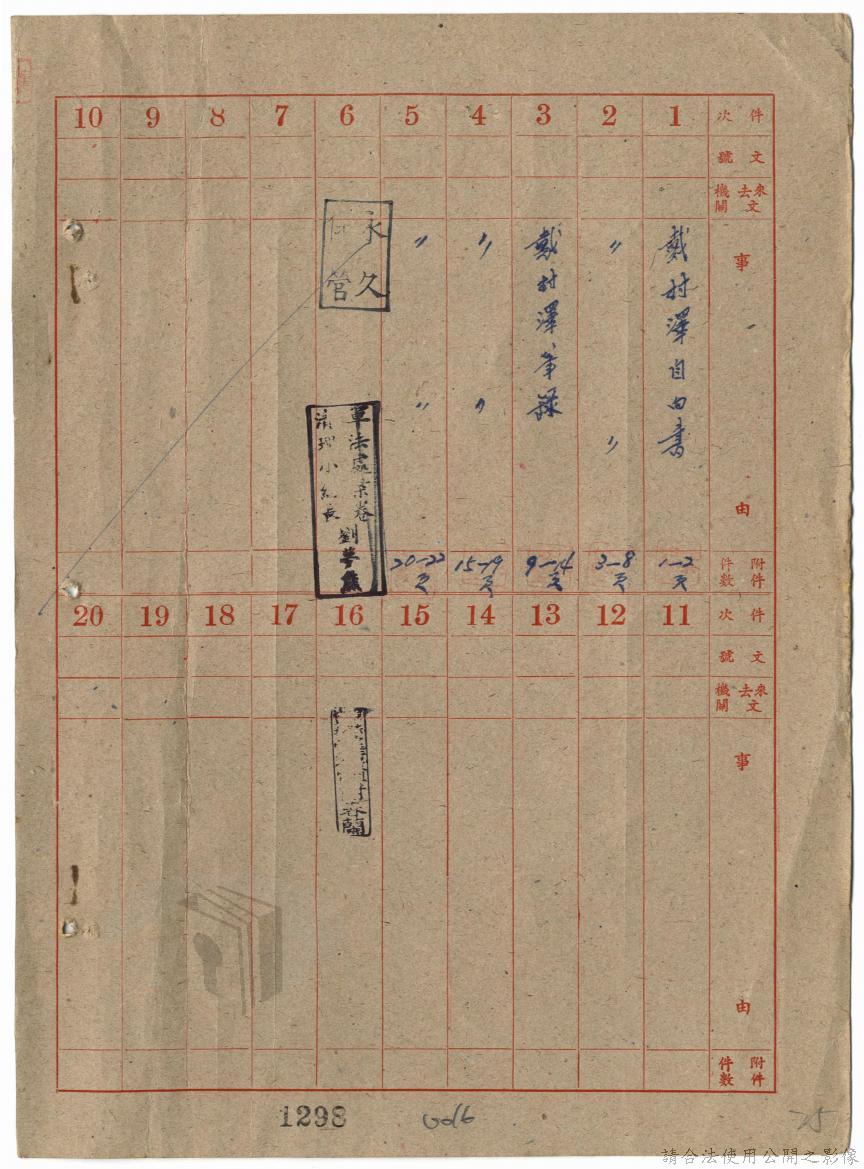 件次 1 2 3 4 5 6 7 8 9 10
文號
來去文機關
事由
戴村澤自白書
〃 〃
戴村澤筆錄
〃 〃
〃 〃
永久
保管
軍法處案卷
清理小組長 劉夢熊
附件件數
1—2頁
3—8頁
9—14頁
15—19頁
20—22頁
件次 11 12 13 14 15 16 17 18 19 20
文號
來去文機關
事由
附件件數
1298
75
請合法使用公開之影像